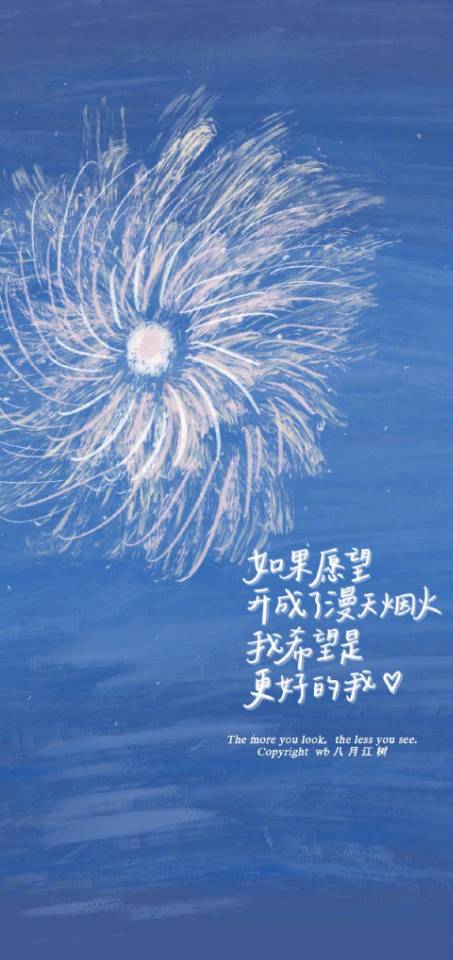 如果愿望
开成了漫天烟火
我希望是
更好的我♡
The more you look, the less you see.
Copyright wb八月江树